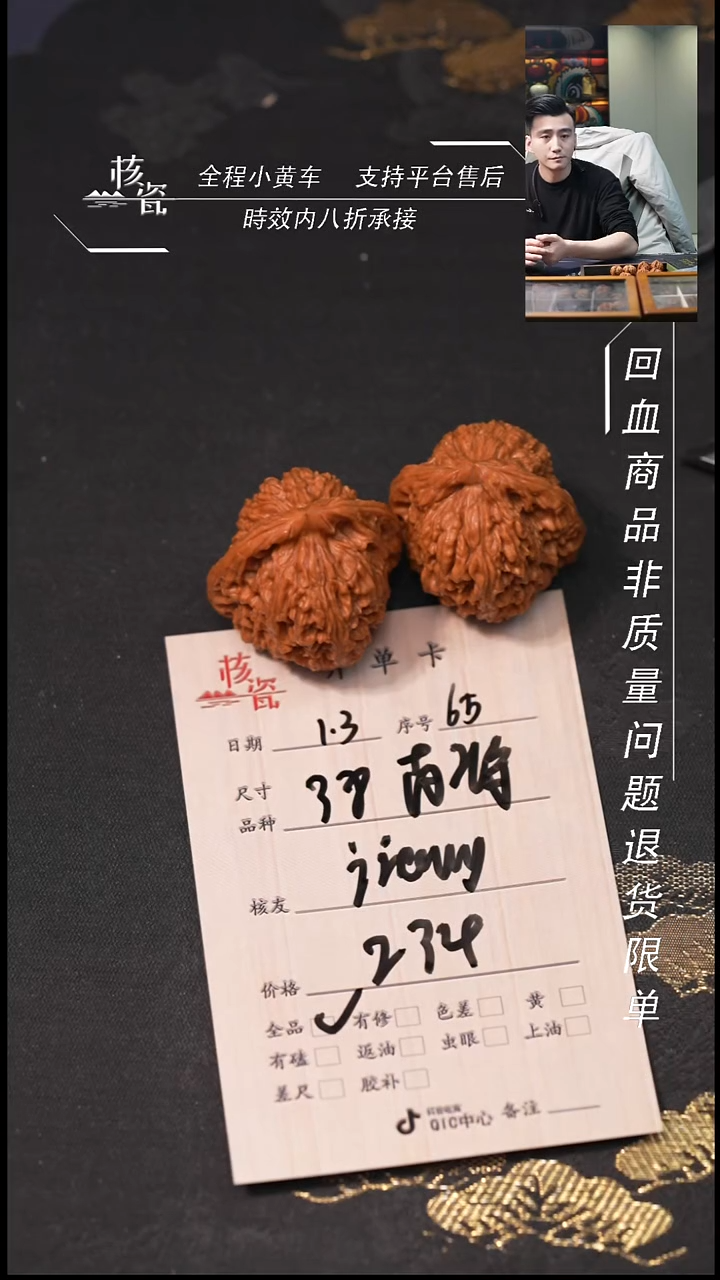 核瓷
全程小黄车 支持平台售后
時效内八折承接
回血商品非质量问题退货限单
核瓷 开单卡
日期 1.3 序号 65
尺寸
品种 39 南将
核友 jienny
价格 234
全品 ✓ 有修 色差 黄
有磕 返油 虫眼 上油
差尺 胶补
抖音电商
QIC中心 备注